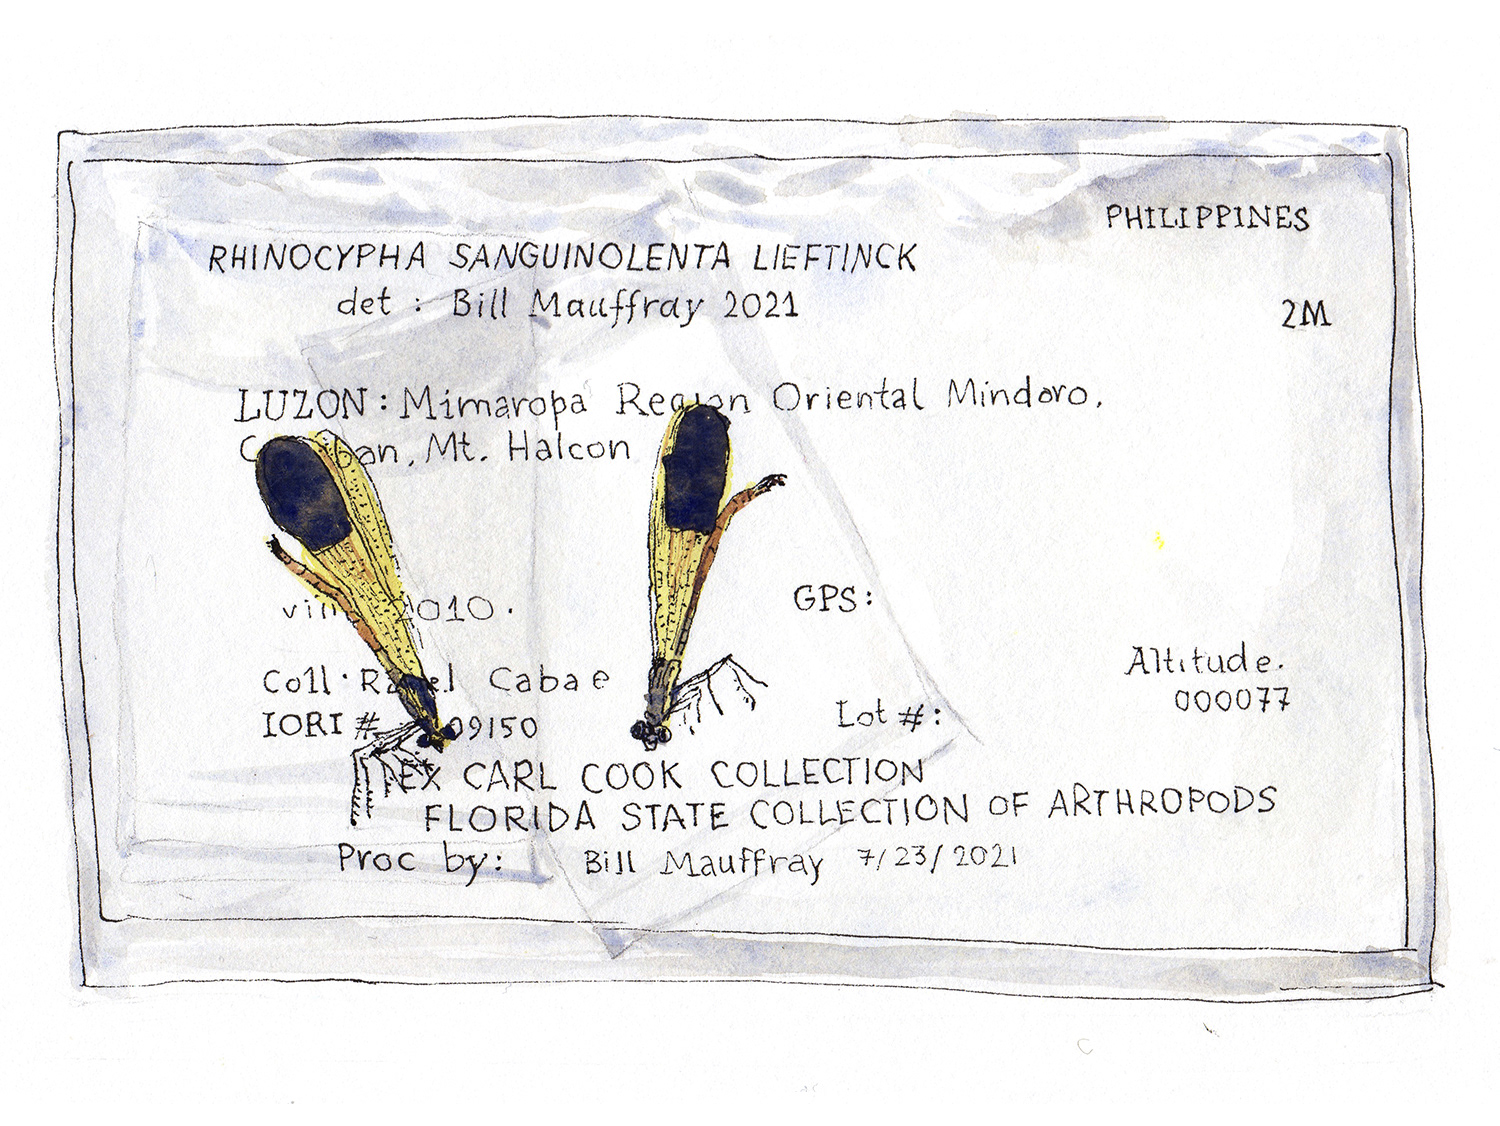 PHILIPPINES
RHINOCYPHA SANGUINOLENTA LIEFTINCK
det : Bill Mauffray 2021
2M
LUZON : Mimaropa Region Oriental Mindoro,
Mt. Halcon
2010.
GPS:
Coll. Cabae
Altitude.
000077
IORI # 09150
Lot #:
EX CARL COOK COLLECTION
FLORIDA STATE COLLECTION OF ARTHROPODS
Proc by: Bill Mauffray 7/23/2021